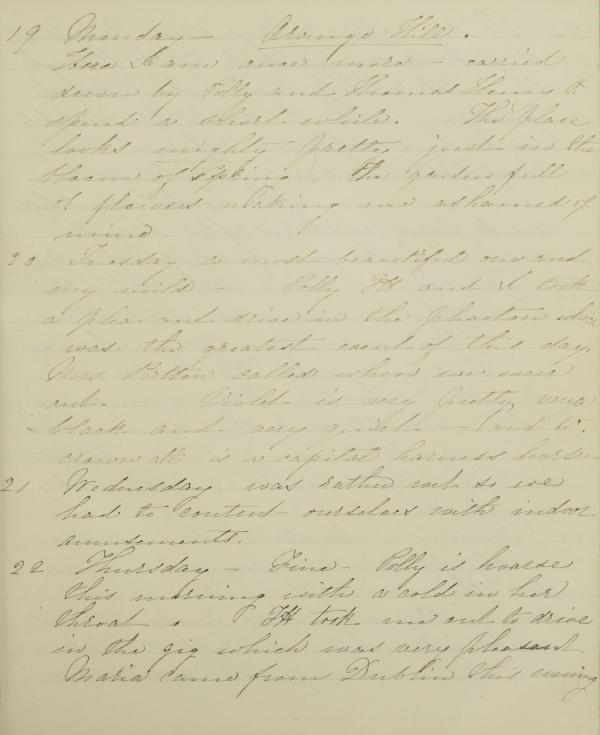 19 Monday — Orange Hill.
Here I am once more — carried
down by Polly and Thomas Henry to
spend a short while. The place
looks mighty pretty just in the
bloom of spring, the garden full
of flowers making me ashamed of
mine
20 Tuesday a most beautiful one and
very mild — Polly TH and I took
a pleasant drive in the phaeton which
was the greatest event of this day.
Mrs Patton called when we were
out. Violet is very pretty, very
black and very quiet — and to
crown all is a capital harness horse
21 Wednesday was rather wet so we
had to content ourselves with indoor
amusements.
22 Thursday — Fine — Polly is hoarse
this morning with a cold in her
throat. TH took me out to drive
in the gig which was very pleasant
Maria came from Dublin this evening